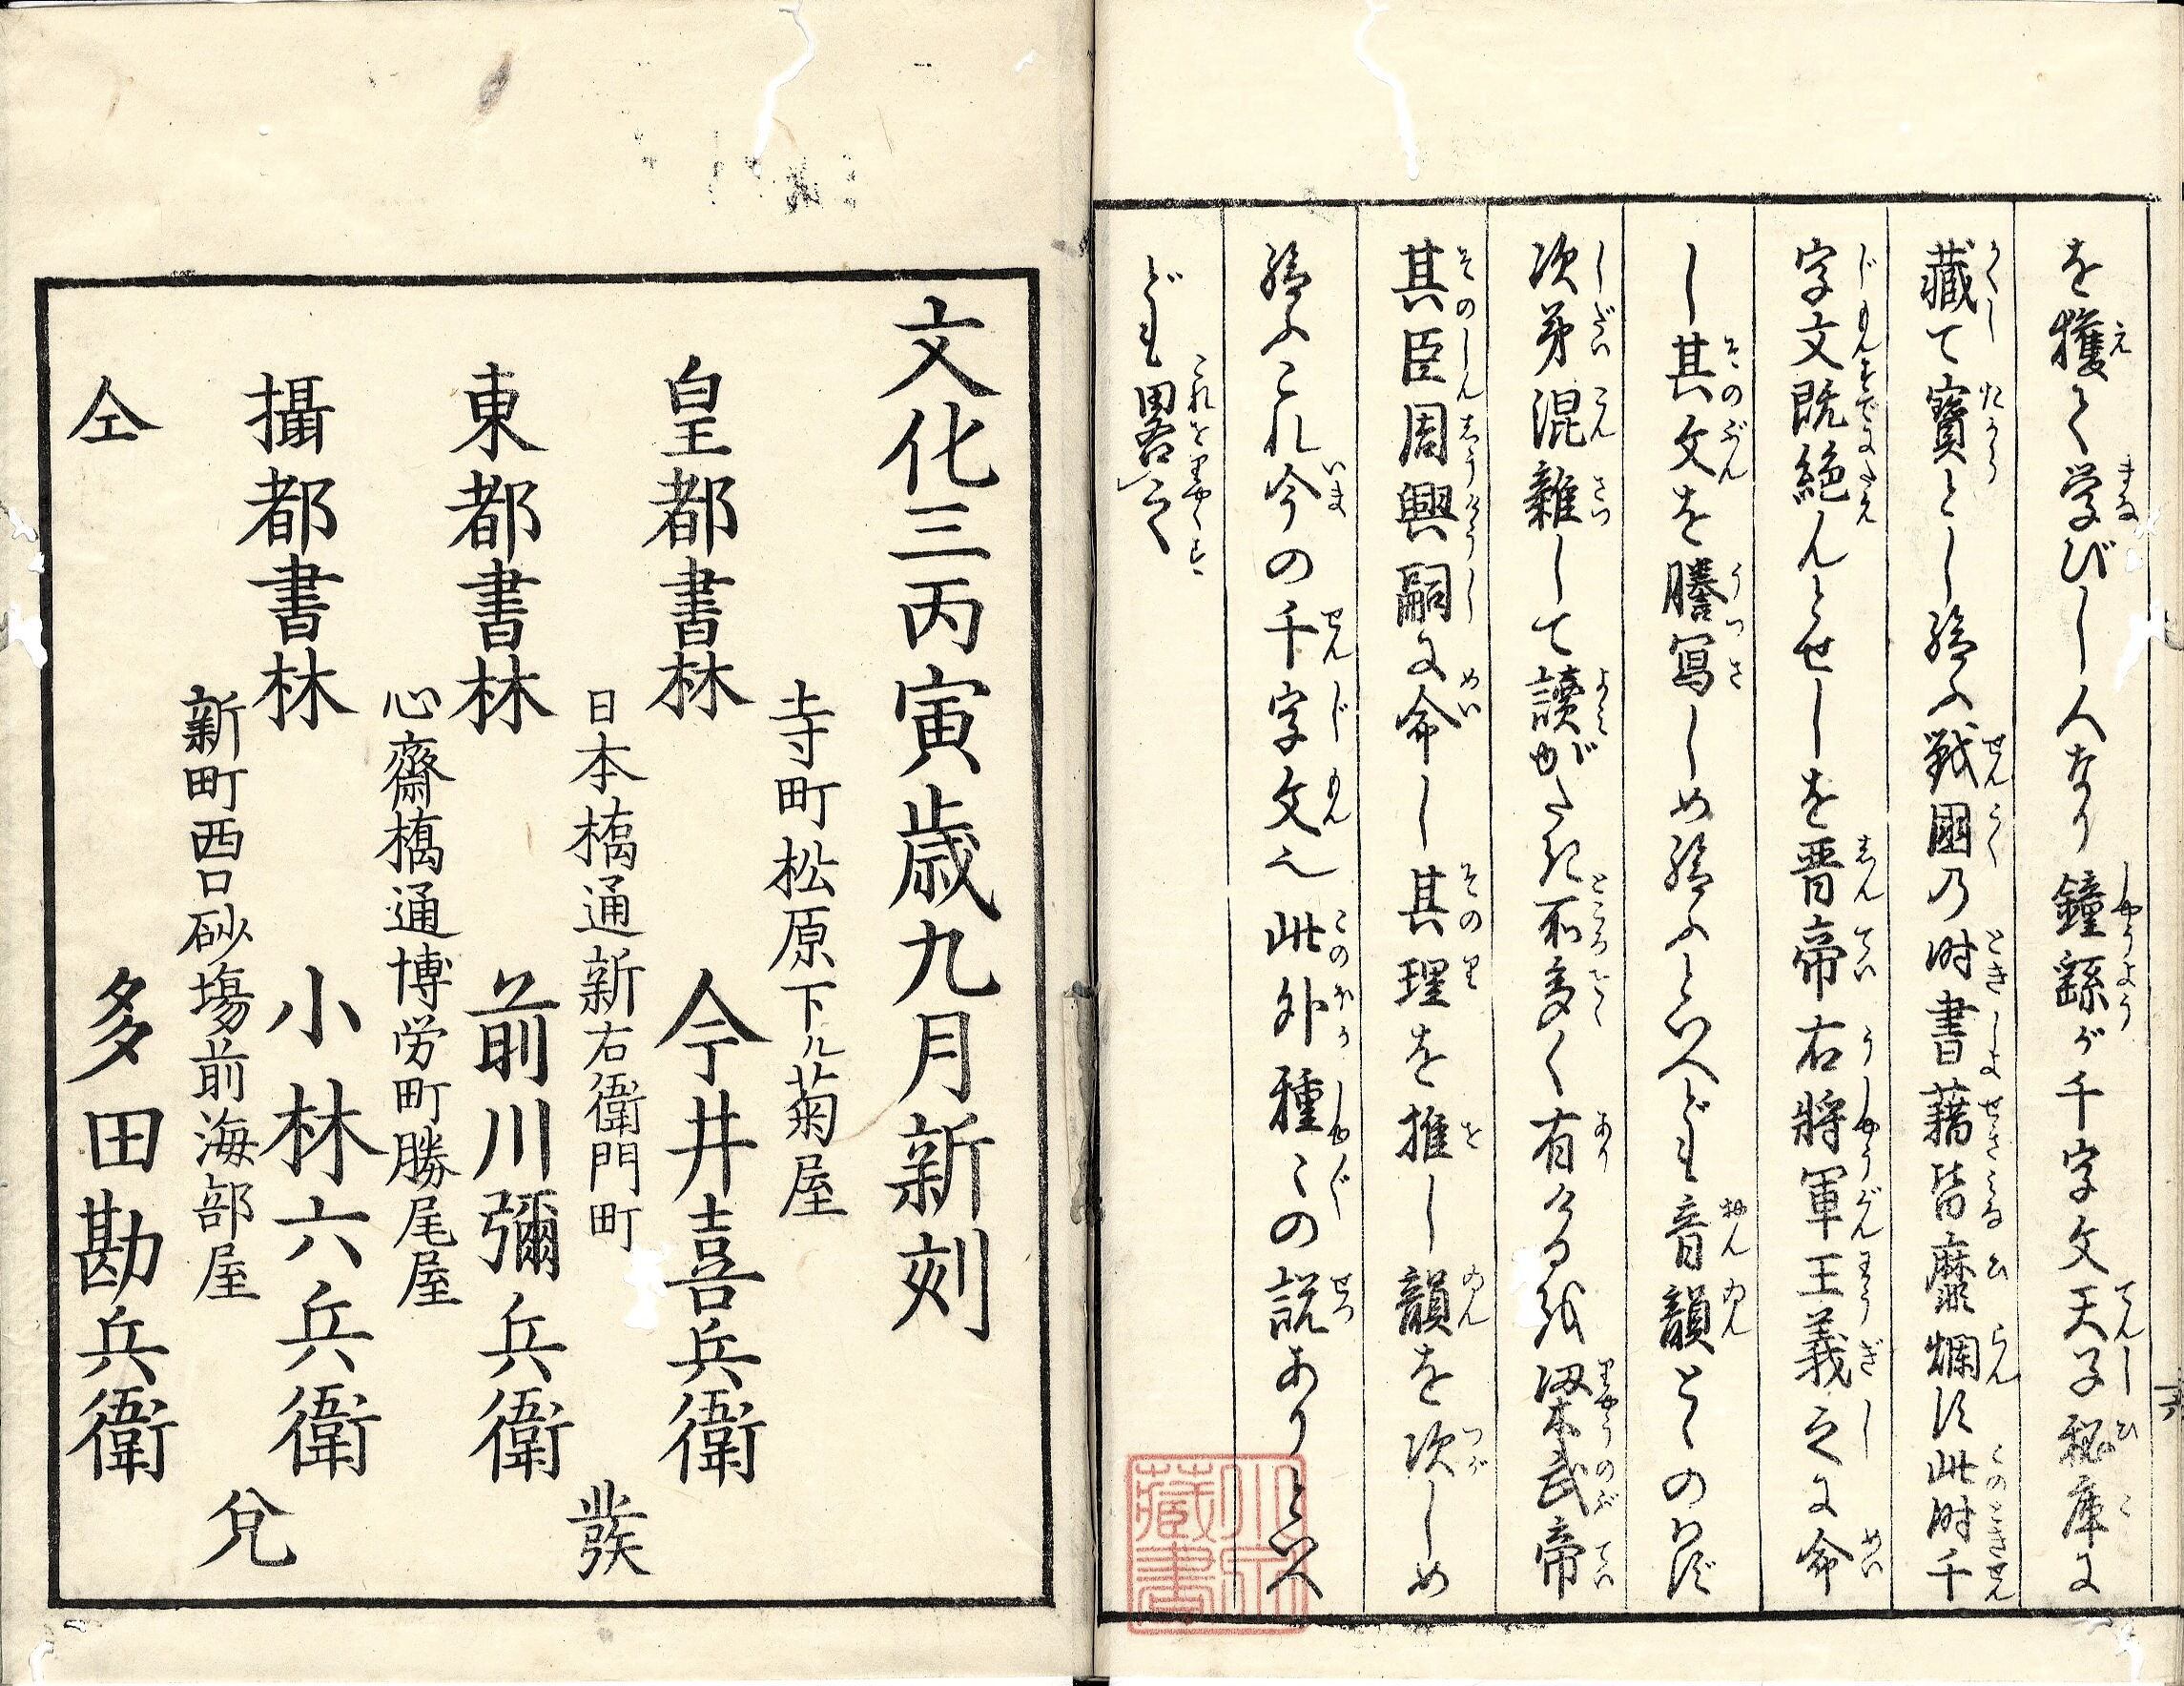 を獲て学びし人なり鐘繇が千字文天子秘庫に
藏て寳とし給ふ戦國乃時書藉皆靡爛す此時千
字文既絶んとせしを晋帝右将軍王義之に命
し其文を謄寫しめ給ふといへども音韻とゝのはず
次第混雜して讀がたき所多く有ける故梁武帝
其臣周興嗣に命し其理を推し韻を次しめ
給ふこれ今の千字文也此外種々の説ありといへ
ども畧之
文化三丙寅歳九月新刻
寺町松原下ル菊屋
皇都書林 今井喜兵衛
日本橋通新右衛門町
東都書林 前川彌兵衛
心齋橋通博労町勝尾屋
攝都書林 小林六兵衛
新町西口砂塲前海部屋
仝 多田勘兵衛
發兌